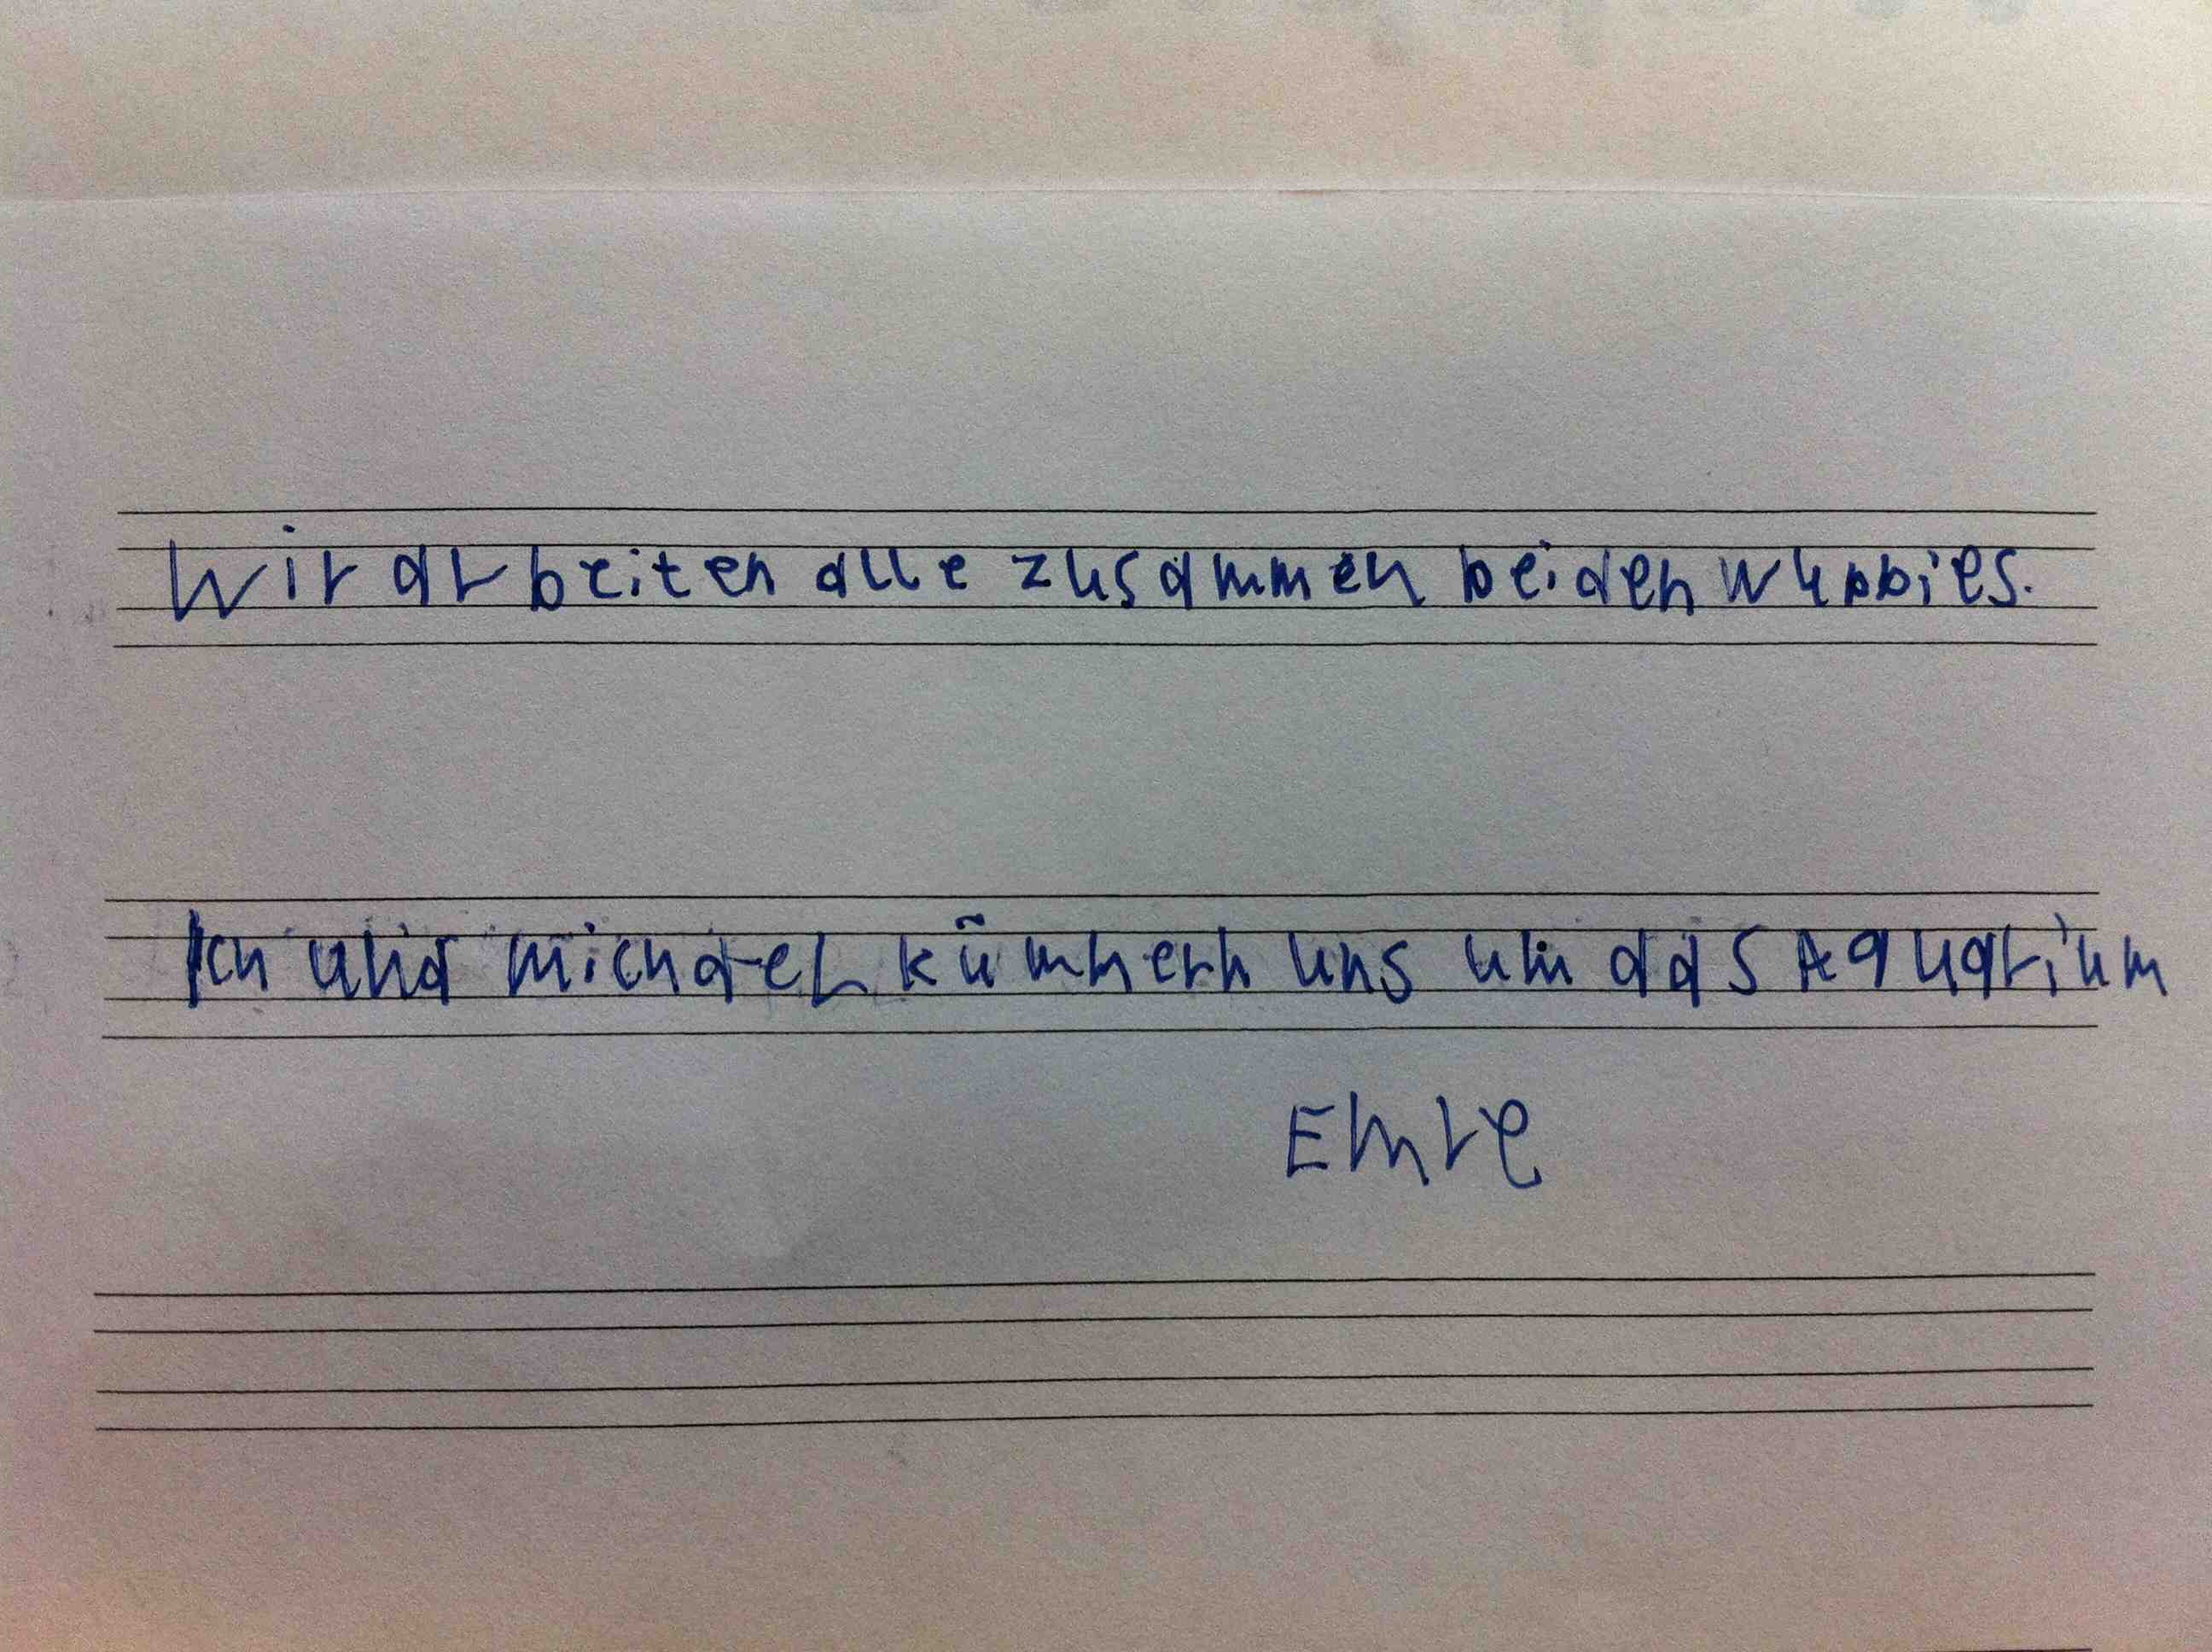 Wir arbeiten alle zusammen beiden Wubbies.
Ich und michael kümmern uns um das Aquarium
Emre